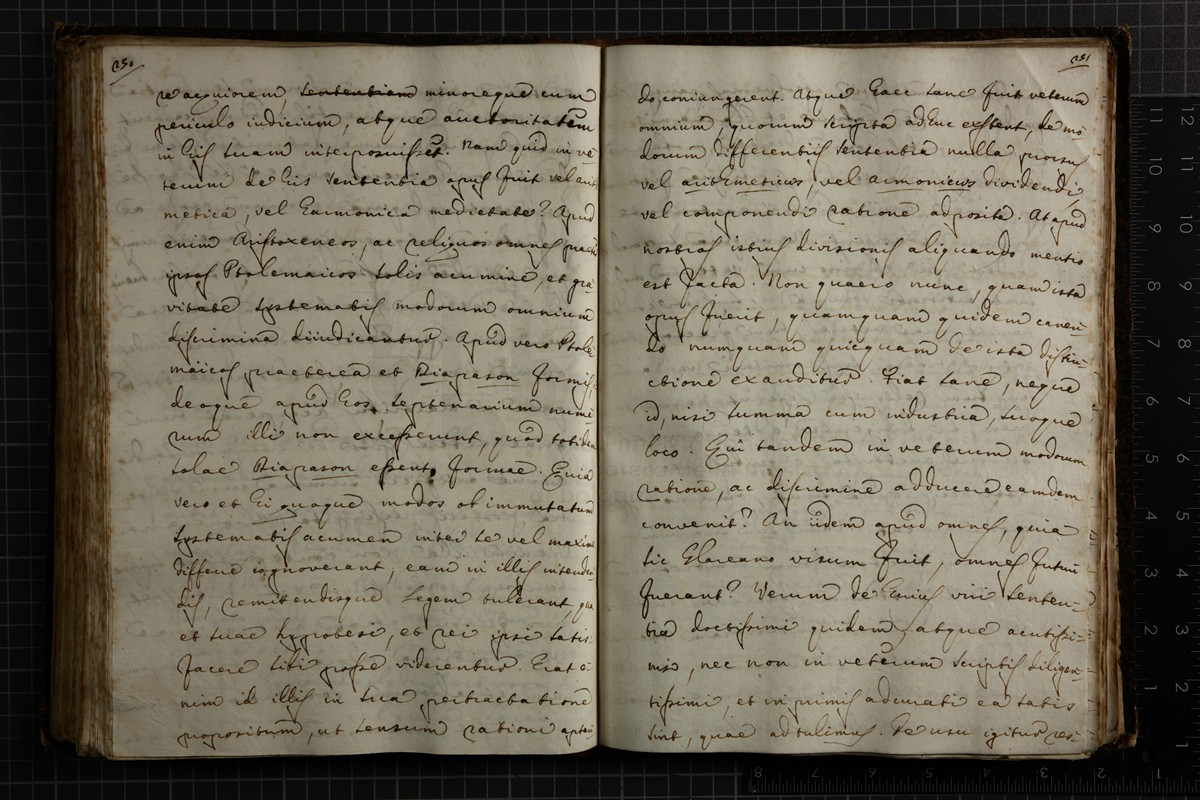 250
re aequiorem, sententiam minoreque cum
periculo iudicium, atque auctoritatem
in his suam interposuisset. Nam quid in ve-
terum de his sententia opus fuit vel arit
metica, vel harmonica medietate? Apud
enim Aristoxeneos, ac reliquos omnes praeter
ipsos Ptolemaicos solis acumine, et gra-
vitate systematis modorum omnium
discrimina diiudicantur. Apud vero Ptole
maicos praeterea et Diapason formis,
deoque apud hos septenarium nume
rum illi non excesserunt, quod totidem
solae Diapason essent formae. Quia
vero et hi quoque modos ob immutatum
systematis acumen inter se vel maxime
differre cognoverant, eam in illis intenden
dis, remittendisque legem tulerant, qua
et suae hypothesi, et rei ipsi satis-
facere sibi posse viderentur. Erat e-
nim id illis in sua pertractatione
propositum, ut sensum rationi aptan
251
do, coniungerent. Atque haec sane fuit veterum
omnium, quorum scripta adhuc exstent, de mo-
dorum differentiis sententia nulla prorsus
vel arithmeticus, vel armonicus dividendi,
vel componendi ratione adposita. At apud
nostros istius divisionis aliquando mentio
est facta. Non quaero nunc, quam ista
opus fuerit, quamquam quidem canen-
do numquam quicquam de ista distin-
ctione exauditur. Fiat sane, neque
id, nisi summa cum industria, suoque
loco. Qui tandem in veterum modorum
ratione, ac discrimine adducere eamdem
convenit? An iidem apud omnes, quia
sic Glareano visum fuit, omnes futuri
fuerant? Verum de huius viri senten-
tia doctissimi quidem, atque acutissi-
mi, nec non in veterum scriptis diligen-
tissimi, et in primis adcurati ea satis
sint, quae adtulimus. De usu igitur rei-